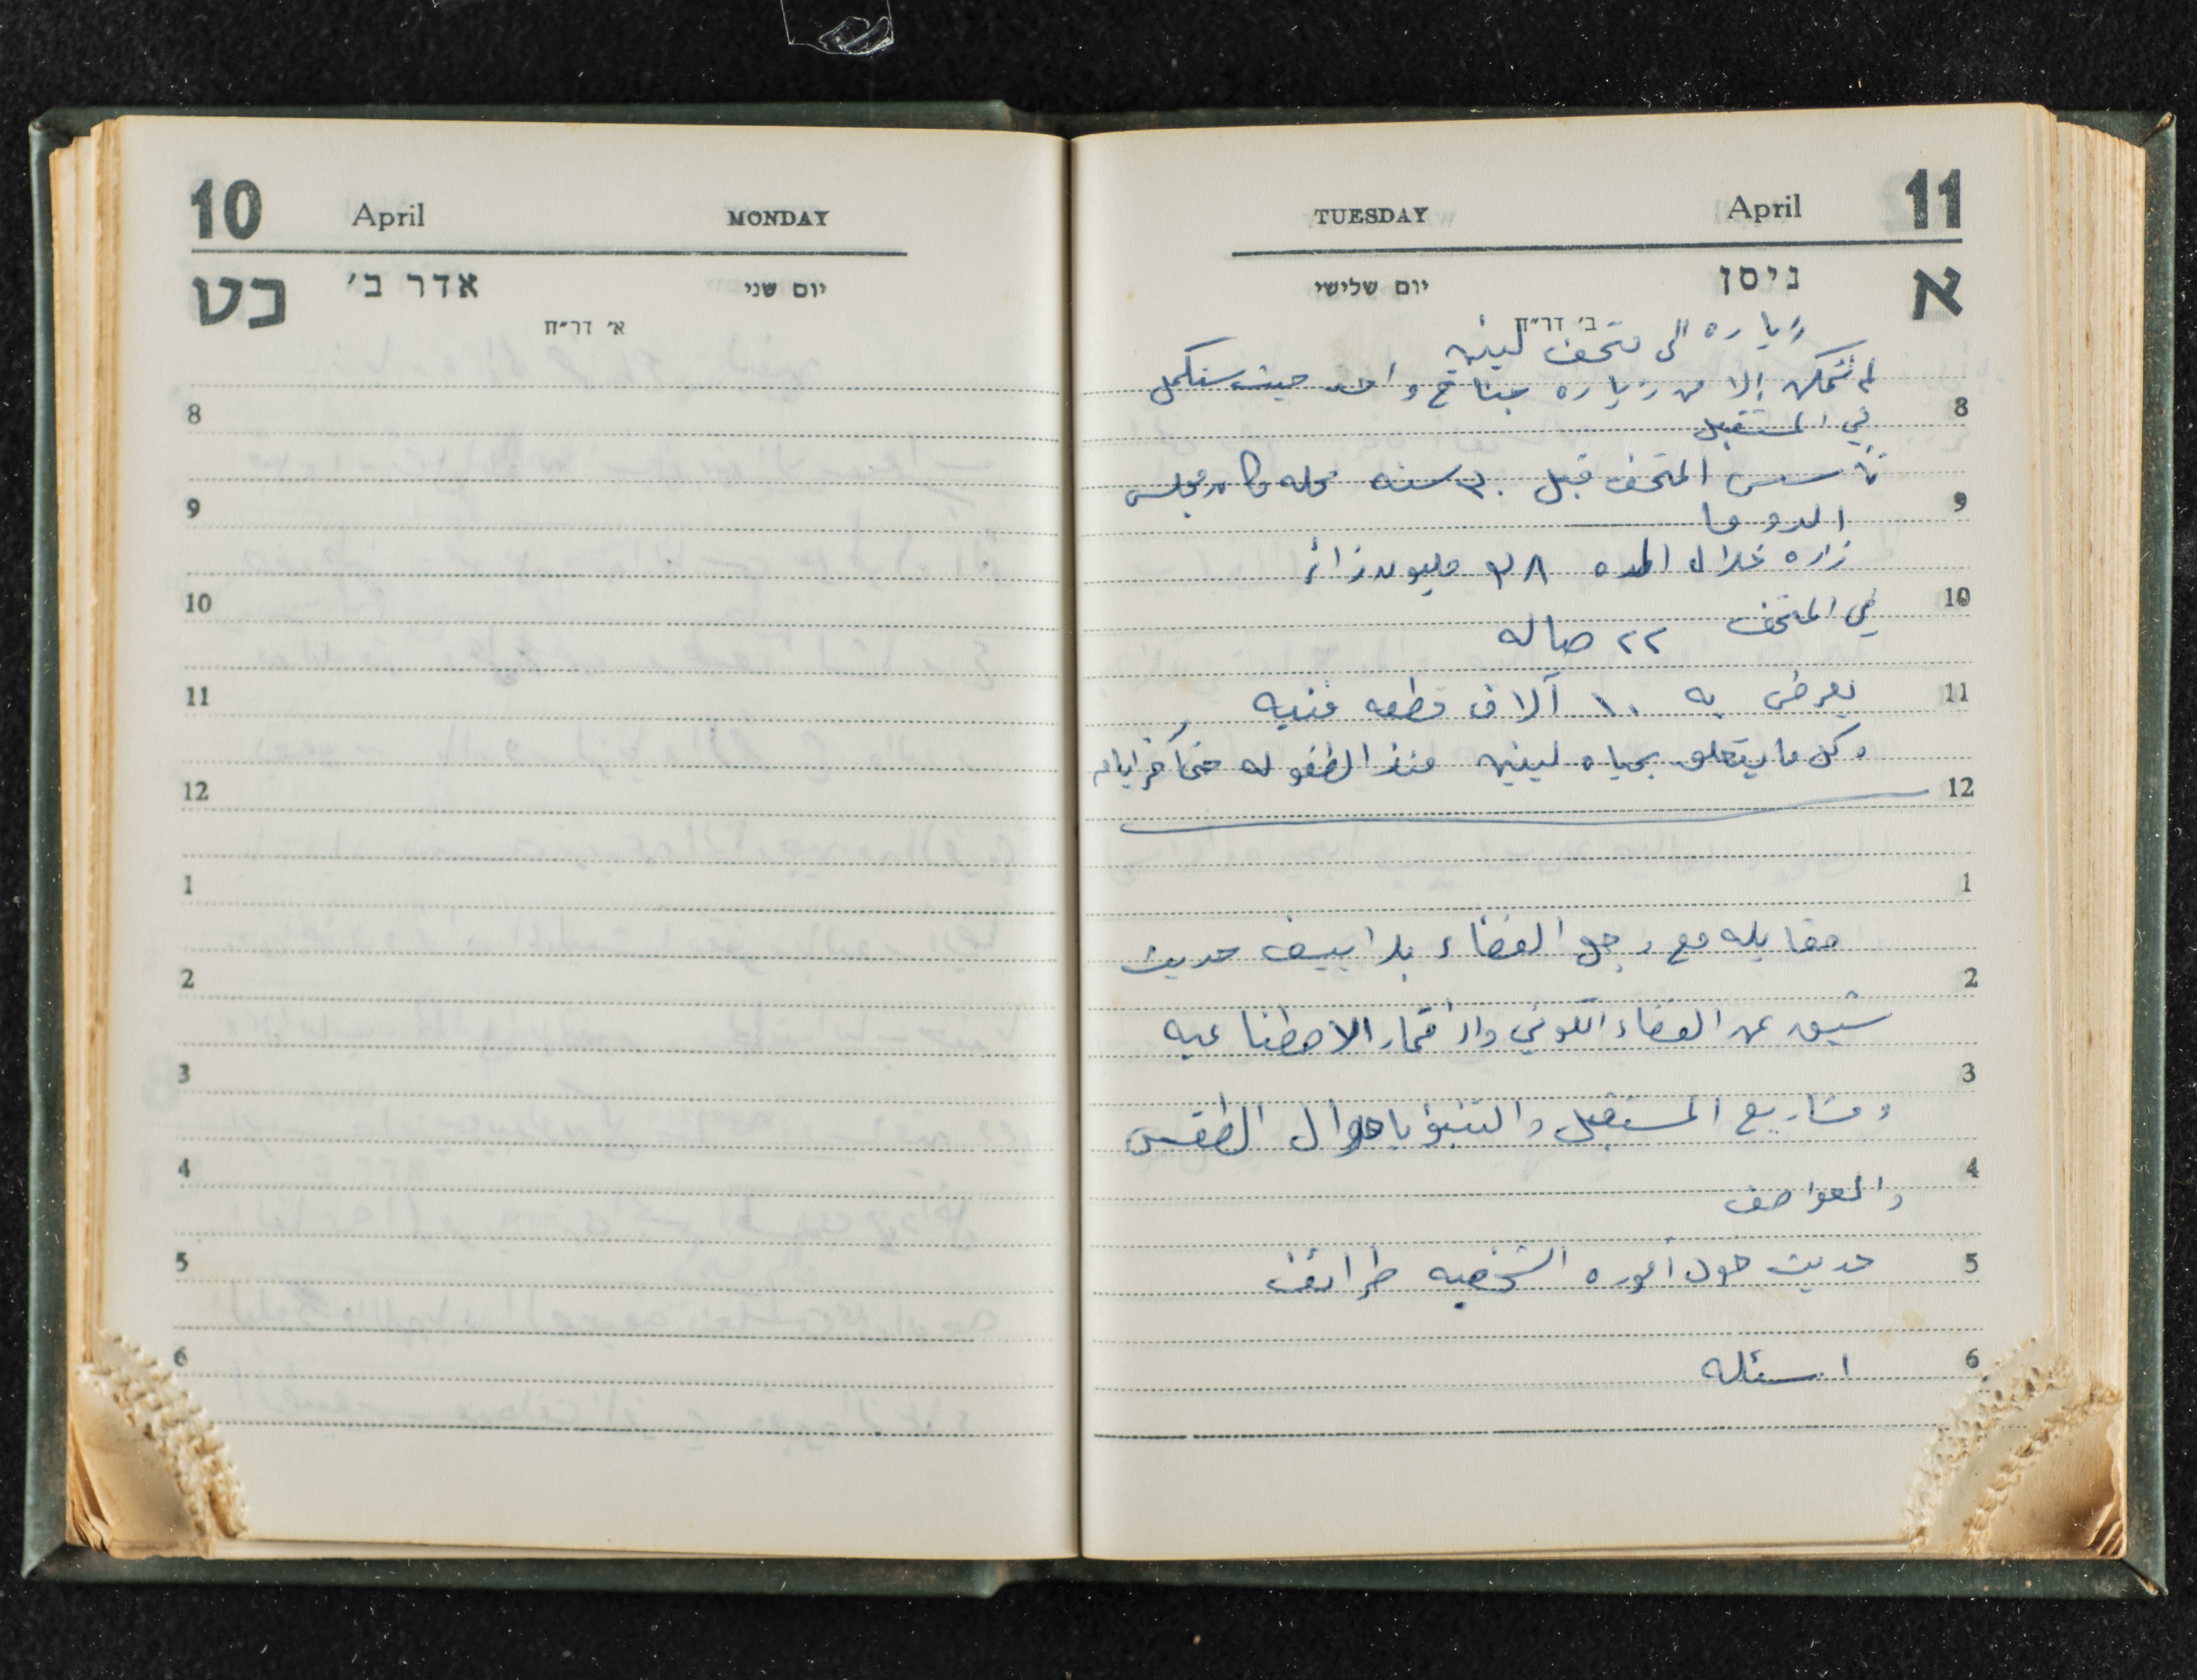 10 April MONDAY
כט אדר ב׳ יום שני
א׳ דר״ח
8
9
10
11
12
1
2
3
4
5
6
TUESDAY April 11
יום שלישי ניסן א
ב׳ דר״ח
زياره الى متحف لينين
لم نتمكن إلا من زياره جناح واحد حيث سنكمل
8
في المستقبل
تأسس المتحف قبل ٣٠ سنه محله كان مجلس
9
الدوما
زاره خلال المده ٣٨ مليون زائر
10
في المتحف ٢٢ صاله
11
يعرض به ١٠ آلاف قطعه فنيه
وكل ما يتعلق بحياه لينين منذ الطفوله حتى آخر ايامه
12
1
مقابله مع رجل الفضاء بلاييف حديث
2
شيق عن الفضاء الكوني والأقمار الاصطناعيه
3
ومشاريع المستقبل والتنبؤ باحوال الطقس
4
والعواصف
حديث حول أموره الشخصيه طرائف
5
اسئله
6